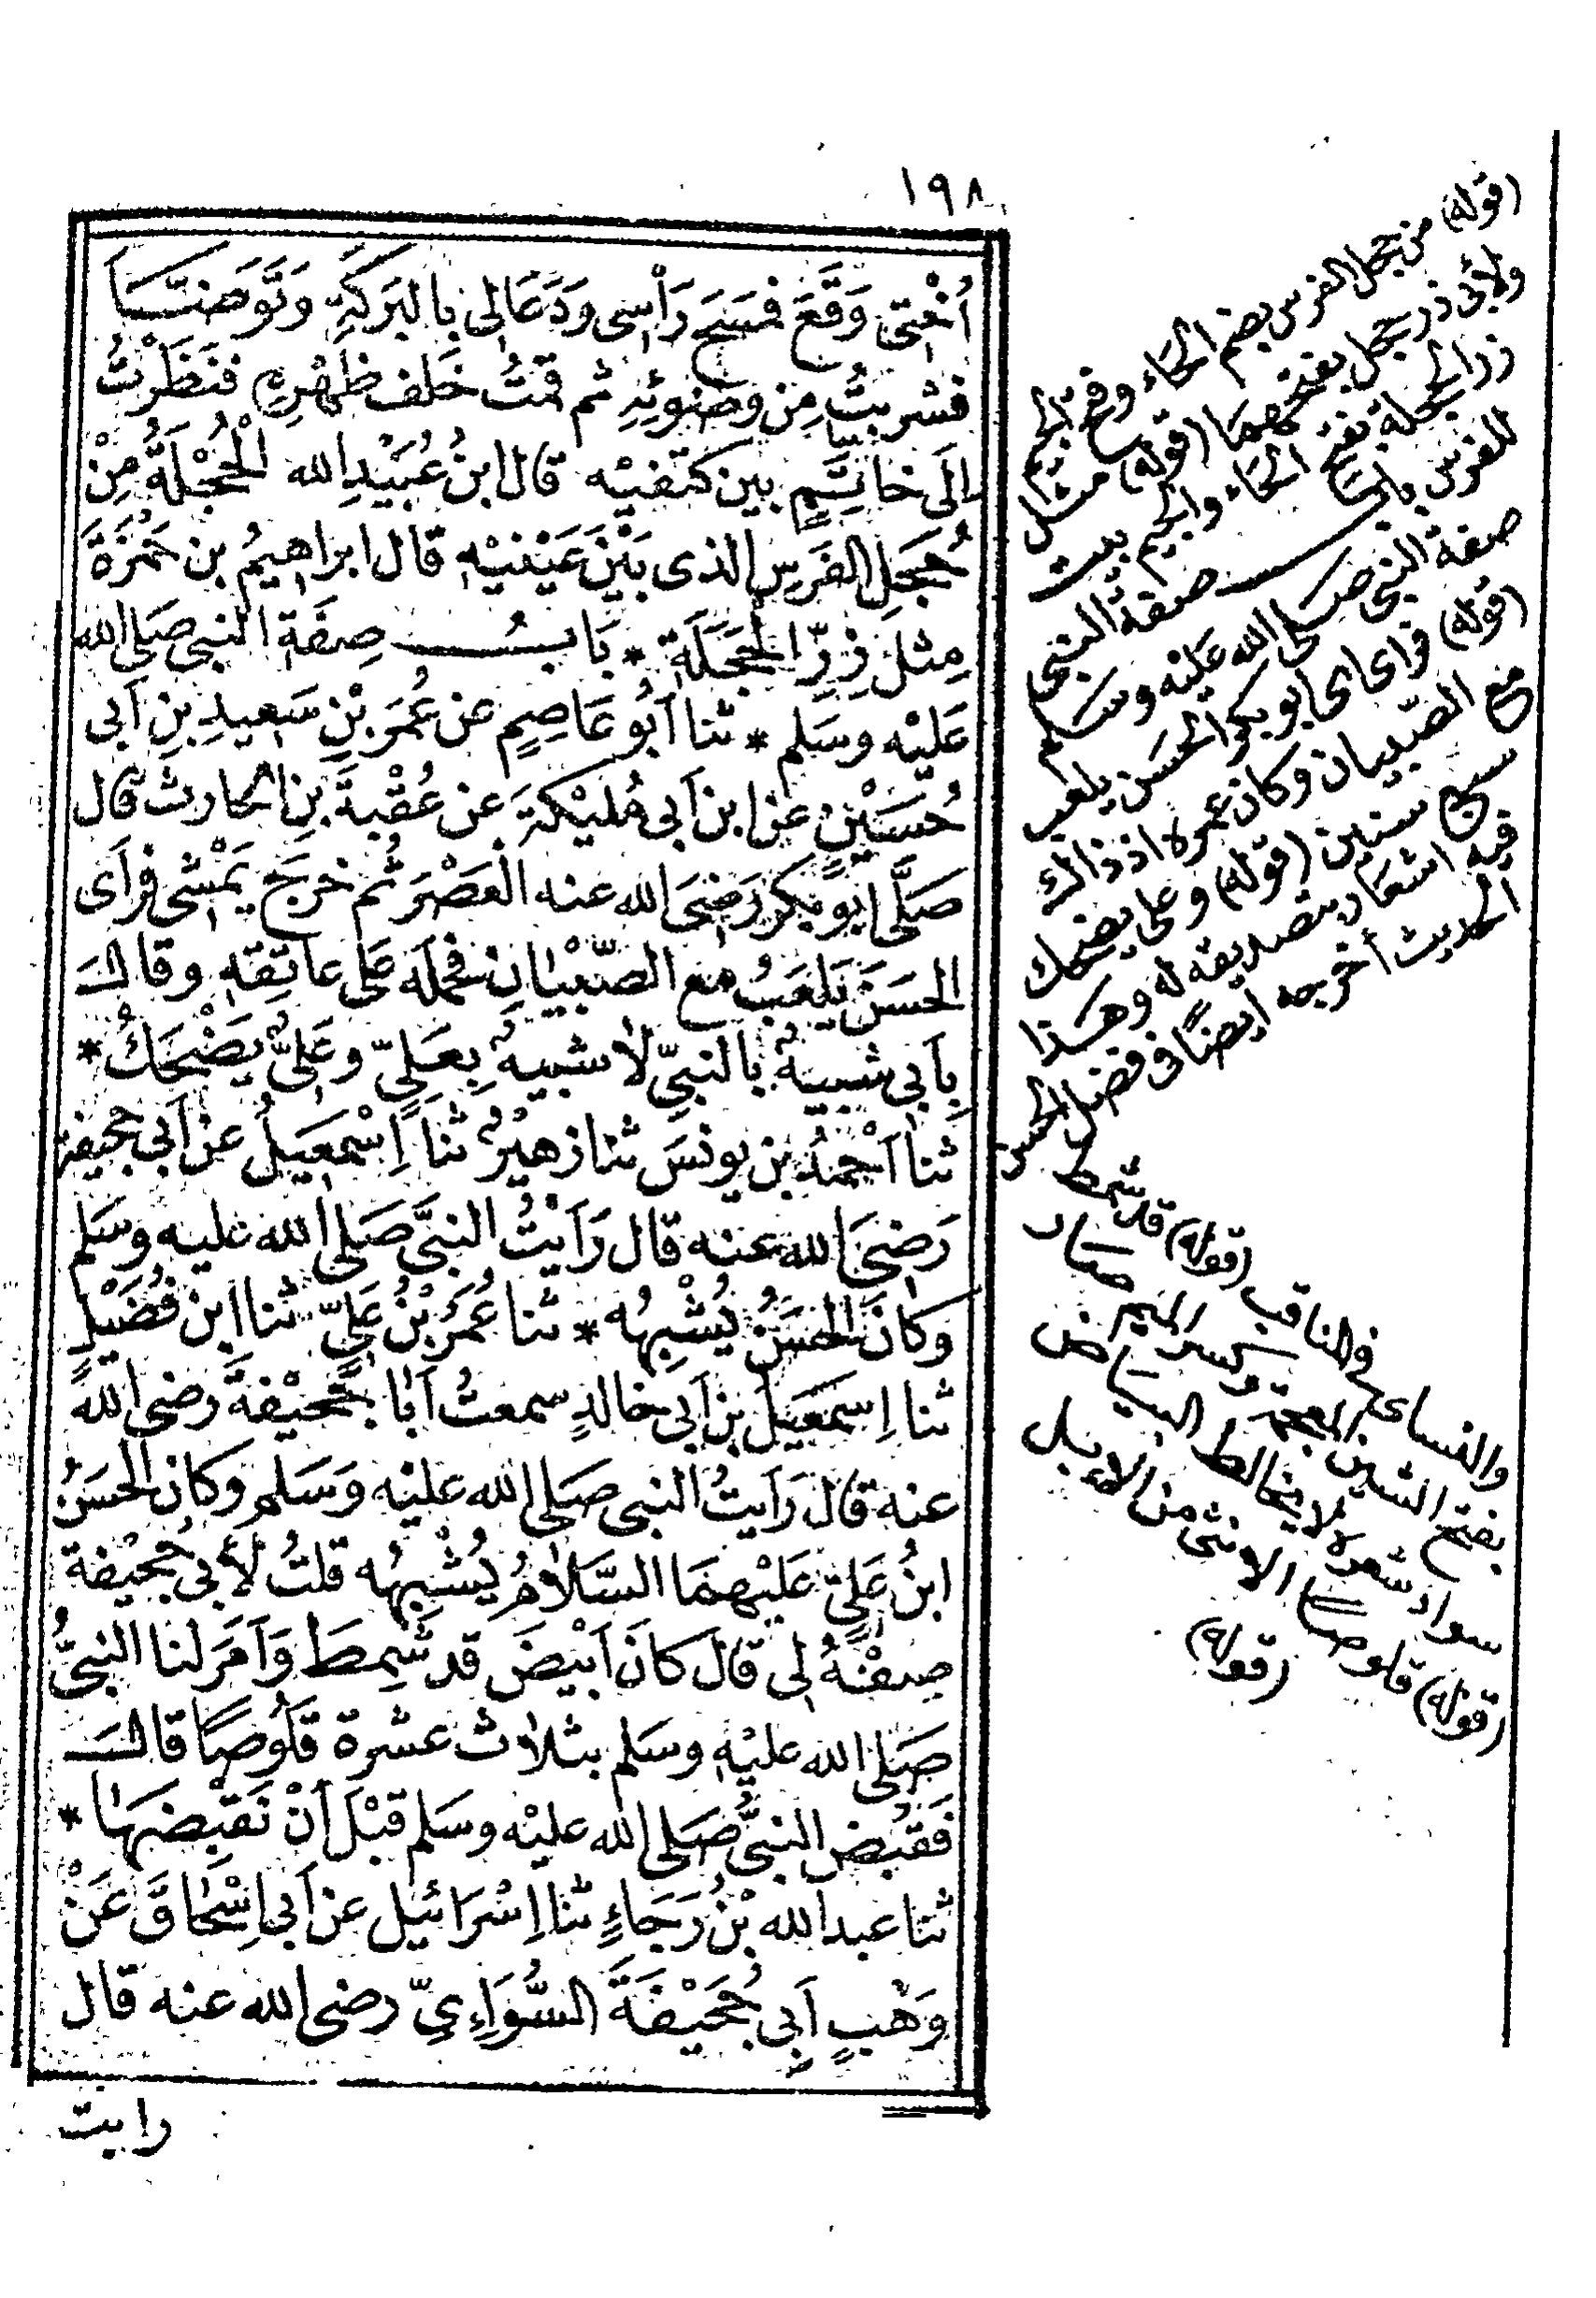 ١٩٨
أُخْتِى وَقَعَ فمَسَحَ رَأْسِى وَدَعَالِى بالبَرَكَةِ وَتَوَضَّـأَ
فشربتُ مِن وَضُوئِهِ ثم قمتُ خَلف ظَهْرِهِ فنَظَرْتُ
اِلَى خَاتِمٍ بين كتفيْه قال ابنُ عُبَيْدِ الله الْحُجْلَةُ مِنْ
حُجَلِ الفَرَسِ الذى بَيْنَ عَيْنَيْهِ قال ابراهيمُ بن حَمْزَةَ
مِثلَ زِرِّ الحَجَلَةِ * بَابُ صِفَةِ النبىِ صَلى الله
عَليْه وسَلم * ثنا اَبُو عَاصِمٍ عن عُمَرَ بْنِ سَعيدِ بنِ اَبى
حُسَيْنٍ عن ابن اَبى مُليْكةَ عن عُقْبةَ بنِ الحارثِ قال
صَلَّى ابو بكر رَضِىَ الله عنه الْعَصْرَ ثم خرجَ يَمْشى فرَأى
الحسَنَ يَلعَبُ مع الصّبْيانِ فحمَلَه عَلى عاتِقِهِ وقالَ
بِاَبى شبيهٌ بالنبىِّ لا شبيهٌ بِعَلىٍّ وعَلىٌّ يَضْحَكُ *
ثنا اَحْمَدُ بن يونسَ ثنا زهيْرٌ ثنا اِسْمعيلُ عن اَبى جحيفة
رَضىَ الله عنه قال رَاَيْتُ النبىَّ صَلى الله عليه وسَلم
وكَانَ الحسَنُ يُشْبِهُه * ثنا عُمَرُ بْنُ عَلىٍّ ثنا ابن فُضَيْلٍ
ثنا اِسمَعيلُ بنُ اَبى خالدٍ سمعتُ اَبا جُحَيْفةَ رضى الله
عنه قال رَاَيتُ النبى صَلى الله عليْه وَسَلم وكان الحسَنُ
ابنُ عَلىٍّ عَليْهِمَا السَّلامُ يُشْبِهُه قلتُ لأبى جُحَيْفة
صِفْهُ لى قالَ كانَ اَبْيَضَ قد شَمِطَ وَاَمَرَ لنا النبىُّ
صَلى الله عليْهِ وسَلم بثلاث عشرة قَلُوصًا قالَ
فَقُبِضَ النبىُّ صَلى الله عليْه وسَلم قبْلَ اَنْ نَقبِضَهَا *
ثنا عبد الله بْنُ رَجَاءٍ ثنا اِسْرَائيل عن اَبى اِسْحَاقَ عَنْ
وَهْبٍ اَبى جُحَيْفَةَ السُّوَاءِىِّ رضى الله عنه قال
رايت
(قوله) من حجل الفرس بضم الحاء وفتح الجيم
ولأبى ذر حجل بفتحهما (قوله) مثل
زر الحجلة بفتح الحاء والجيم بيت
للعروس باب صفة النبى
صفة النبى صلى الله عليه وسلم
(قوله) فرأى اى ابو بكر الحسن يلعب
مع الصّبيان وكان عمره اذ ذاك
سبع سنين (قوله) وعلى يضحك
فيه اشعار بتصديقه له وهذا
الحديث أخرجه ايضًا فى فضل الحسن
والنساى فى المناقب (قوله) قد شمط
بفتح الشين المعجمة وكسر الميم صار
سواد شعره مخالطا لبياض
(قوله) قلوصا الانثى من الابل
(قوله)